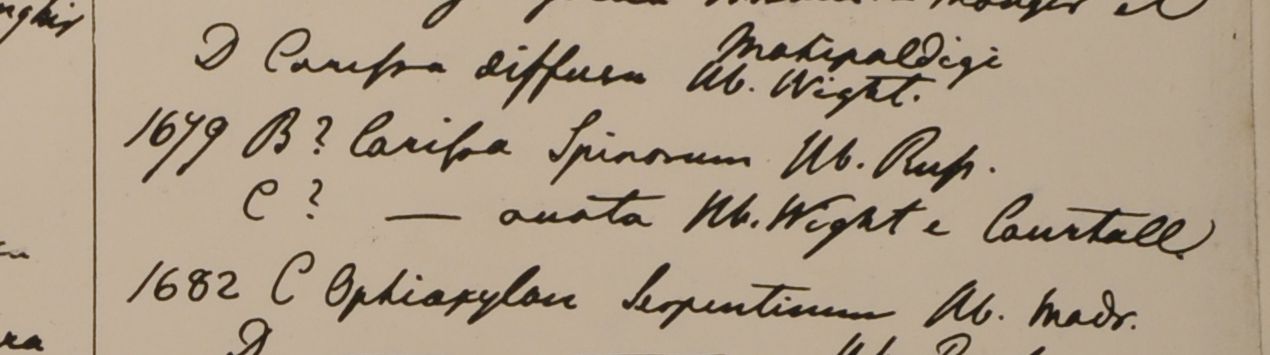 D Carissa diffusa Hb. Wight.
1679 B? Carissa Spinarum Hb. Russ.
C? — ovata Hb. Wight e Courtall
1682 C Ophioxylon Serpentinum Hb. Madr.
D